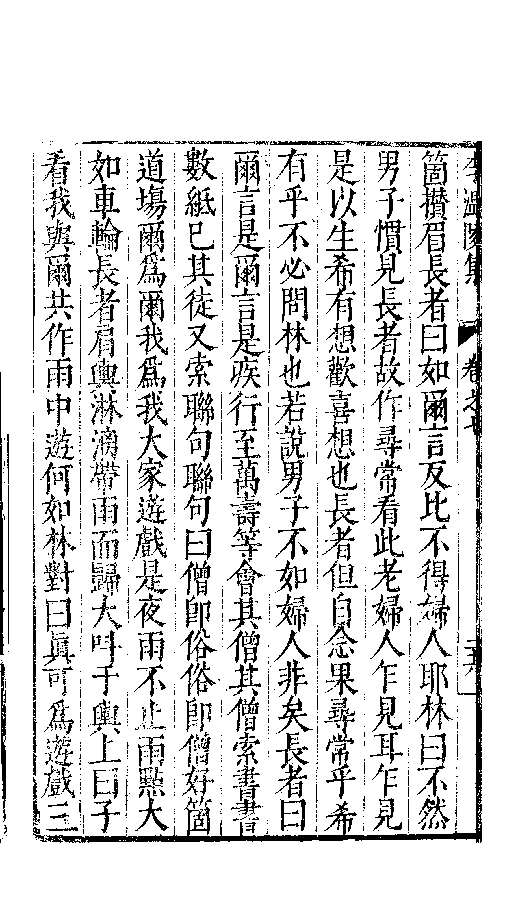 李溫陵集 卷之七 二十六
箇攢眉長者曰如爾言反比不得婦人耶林曰不然
男子慣見長者故作尋常看此老婦人乍見耳乍見
是以生希有想歡喜想也長者但自念果尋常乎希
有乎不必問林也若說男子不如婦人非矣長者曰
爾言是爾言是疾行至萬壽寺會其僧其僧索書書
數紙已其徒又索聯句聯句曰僧卽俗俗卽僧好箇
道塲爾爲爾我爲我大家遊戲是夜雨不止雨㸃大
如車輪長者肩輿淋漓帶雨而歸大呌于輿上曰子
看我與爾共作雨中遊何如林對曰眞可爲遊戲三